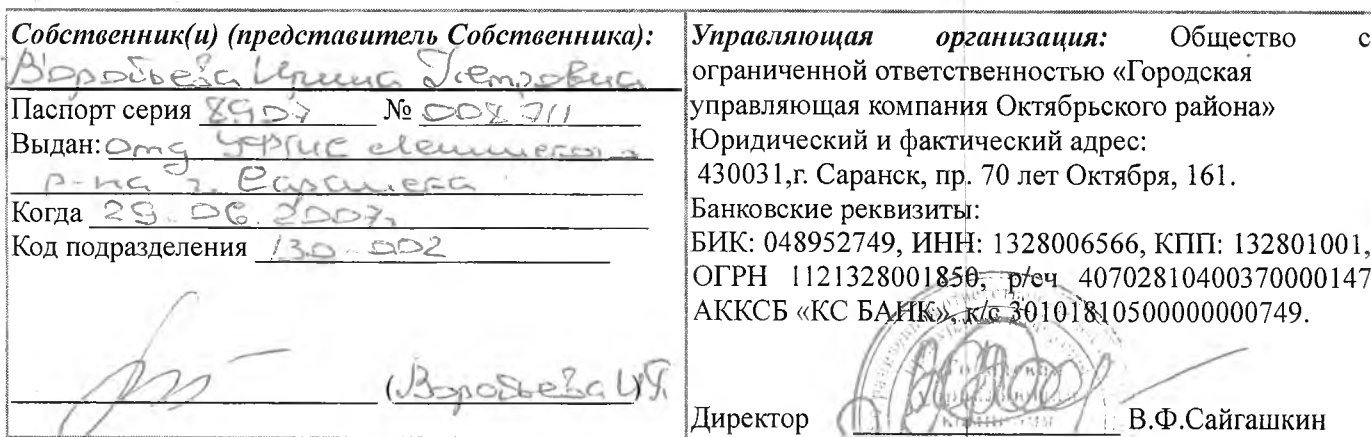 Собственник(и) (представитель Собственника):
Воробьева Ирина Петровна
Паспорт серия 8907 № 008711
Выдан: Отд УФМС Ленинского
р-на г. Саранска
Когда 29.06.2007г
Код подразделения 130-002
(Воробьева И.П.)
Управляющая организация: Общество с
ограниченной ответственностью «Городская
управляющая компания Октябрьского района»
Юридический и фактический адрес:
430031,г. Саранск, пр. 70 лет Октября, 161.
Банковские реквизиты:
БИК: 048952749, ИНН: 1328006566, КПП: 132801001,
ОГРН 1121328001850, р/сч 40702810400370000147
АККСБ «КС БАНК», к/с 30101810500000000749.
Директор В.Ф.Сайгашкин